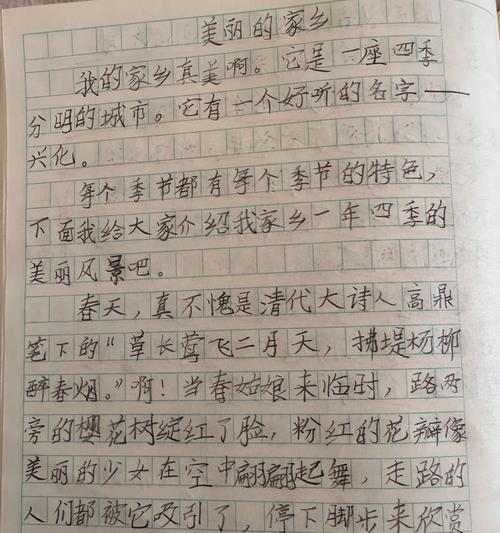 美丽的家乡
我的家乡真美啊。它是一座四季
分明的城市。它有一个好听的名字——
兴化。
每个季节都有每个季节的特色，
下面我给大家介绍我家乡一年四季的
美丽风景吧。
春天，真不愧是清代大诗人高鼎
笔下的“草长莺飞二月天，拂堤杨柳
醉春烟。”啊！当春姑娘来临时，路两
旁的樱花树绽红了脸，粉红的花瓣像
美丽的少女在空中翩翩起舞，走路的
人们都被它吸引了，停下脚步来欣赏